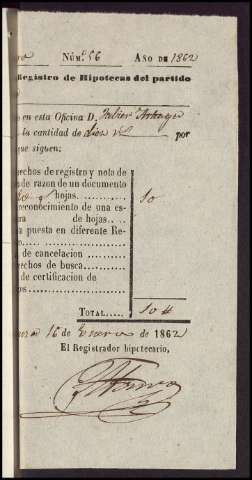 Núm.º 56 Año de 1862
Registro de Hipotecas del partido
en esta Oficina D. Javier
la cantidad de diez por
que siguen:
rechos de registro y nota de
n de razon de un documento
hojas........ 10
reconocimiento de una es-
ra de hojas....
a puesta en diferente Re-
o..................
n de cancelacion ........
rechos de busca..........
n de certificacion de
os..................
Total..... 10
16 de Enero de 1862
El Registrador hipotecario,